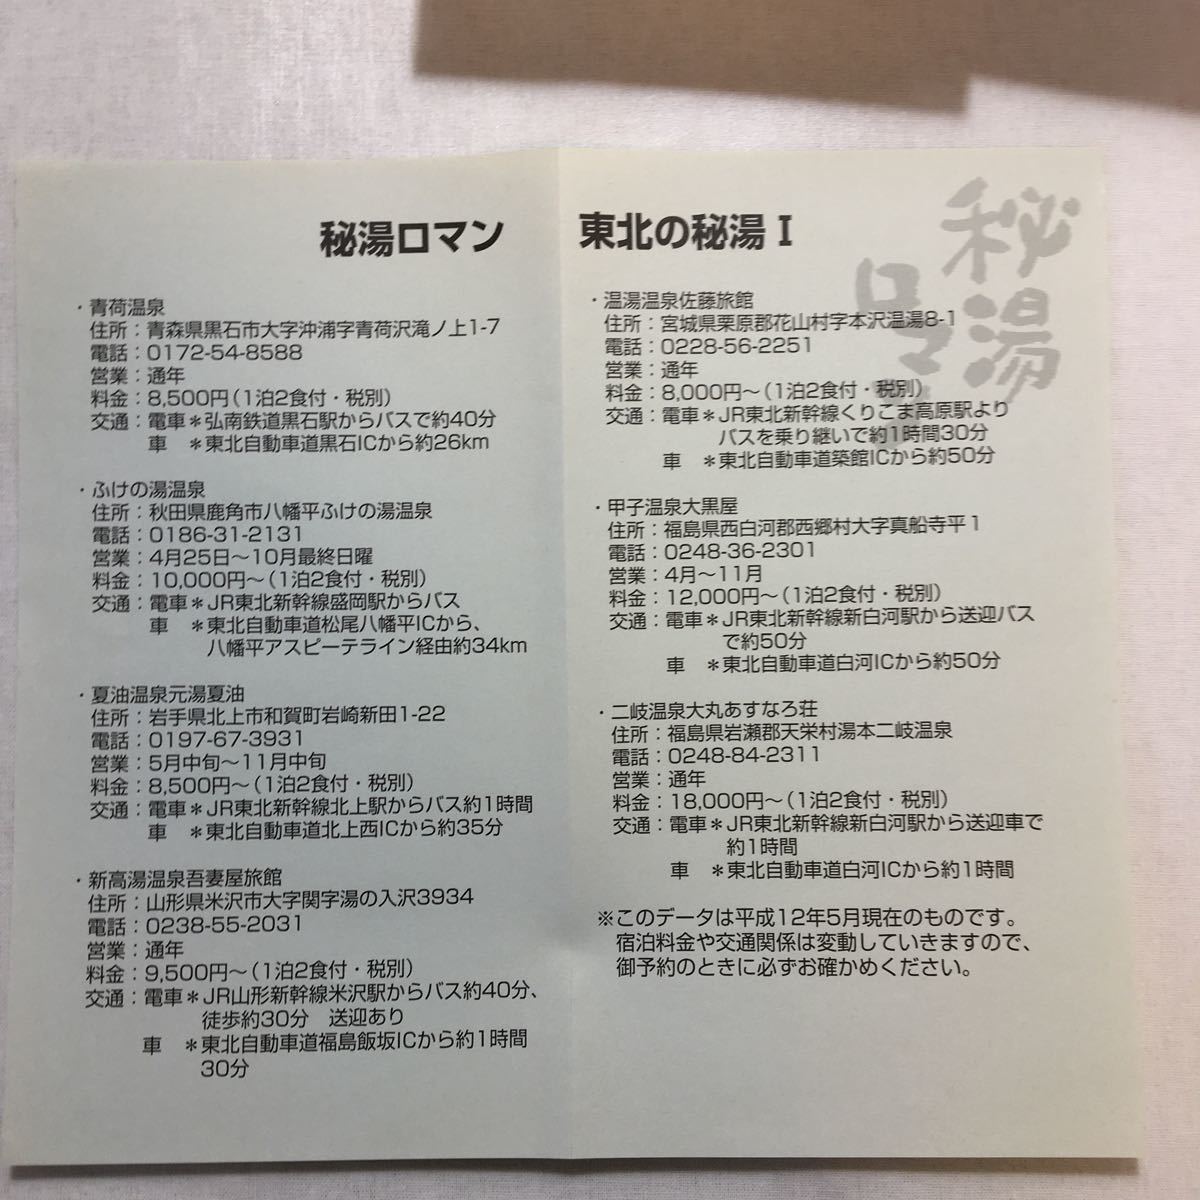 秘湯ロマン
・青荷温泉
住所：青森県黒石市大字沖浦字青荷沢滝ノ上1-7
電話：0172-54-8588
営業：通年
料金：8,500円（1泊2食付・税別）
交通：電車＊弘南鉄道黒石駅からバスで約40分
車　＊東北自動車道黒石ICから約26km
・ふけの湯温泉
住所：秋田県鹿角市八幡平ふけの湯温泉
電話：0186-31-2131
営業：4月25日～10月最終日曜
料金：10,000円～（1泊2食付・税別）
交通：電車＊JR東北新幹線盛岡駅からバス
車　＊東北自動車道松尾八幡平ICから、
八幡平アスピーテライン経由約34km
・夏油温泉元湯夏油
住所：岩手県北上市和賀町岩崎新田1-22
電話：0197-67-3931
営業：5月中旬～11月中旬
料金：8,500円～（1泊2食付・税別）
交通：電車＊JR東北新幹線北上駅からバス約1時間
車　＊東北自動車道北上西ICから約35分
・新高湯温泉吾妻屋旅館
住所：山形県米沢市大字関字湯の入沢3934
電話：0238-55-2031
営業：通年
料金：9,500円～（1泊2食付・税別）
交通：電車＊JR山形新幹線米沢駅からバス約40分、
徒歩約30分　送迎あり
車　＊東北自動車道福島飯坂ICから約1時間
30分
東北の秘湯Ⅰ
秘湯
ロマン
・温湯温泉佐藤旅館
住所：宮城県栗原郡花山村字本沢温湯8-1
電話：0228-56-2251
営業：通年
料金：8,000円～（1泊2食付・税別）
交通：電車＊JR東北新幹線くりこま高原駅より
バスを乗り継いで約1時間30分
車　＊東北自動車道築館ICから約50分
・甲子温泉大黒屋
住所：福島県西白河郡西郷村大字真船寺平1
電話：0248-36-2301
営業：4月～11月
料金：12,000円～（1泊2食付・税別）
交通：電車＊JR東北新幹線新白河駅から送迎バス
で約50分
車　＊東北自動車道白河ICから約50分
・二岐温泉大丸あすなろ荘
住所：福島県岩瀬郡天栄村湯本二岐温泉
電話：0248-84-2311
営業：通年
料金：18,000円～（1泊2食付・税別）
交通：電車＊JR東北新幹線新白河駅から送迎車で
約1時間
車　＊東北自動車道白河ICから約1時間
※このデータは平成12年5月現在のものです。
宿泊料金や交通関係は変動していきますので、
御予約のときに必ずお確かめください。